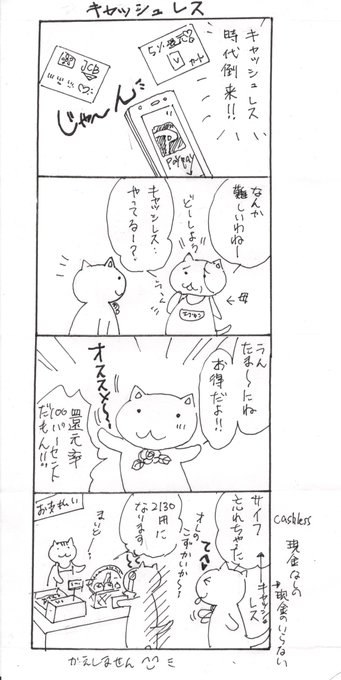 キャッシュレス
キャッシュレス
時代倒来!!
5%還元
カード
V
JCB
じゃ〜ん
PayPay
なんか
難しいわねー
どーしよう?
キャッシュレス…
やってるー?
←母
うん
たま〜にね
お得だよ!!
オススメ〜
還元率
100パーセント
だもん!!
サイフ
忘れちゃった
てへ
キャッシュ
レス
2130
円に
なります
オレの
こずかいか〜
お支払い
まいど…
かえしません
cashless
現金なしの
→現金のいらない